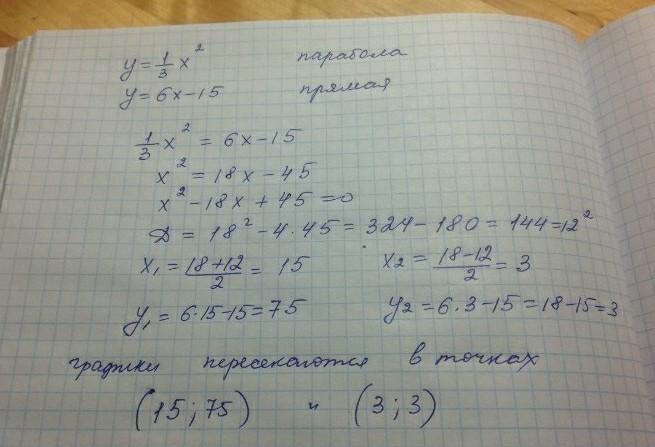 y = 1/3 x² парабола
y = 6x - 15 прямая
1/3 x² = 6x - 15
x² = 18x - 45
x² - 18x + 45 = 0
D = 18² - 4 · 45 = 324 - 180 = 144 = 12²
x₁ = (18+12)/2 = 15 x₂ = (18-12)/2 = 3
y₁ = 6·15-15 = 75 y₂ = 6·3-15 = 18-15 = 3
графики пересекаются в точках
(15; 75) и (3; 3)